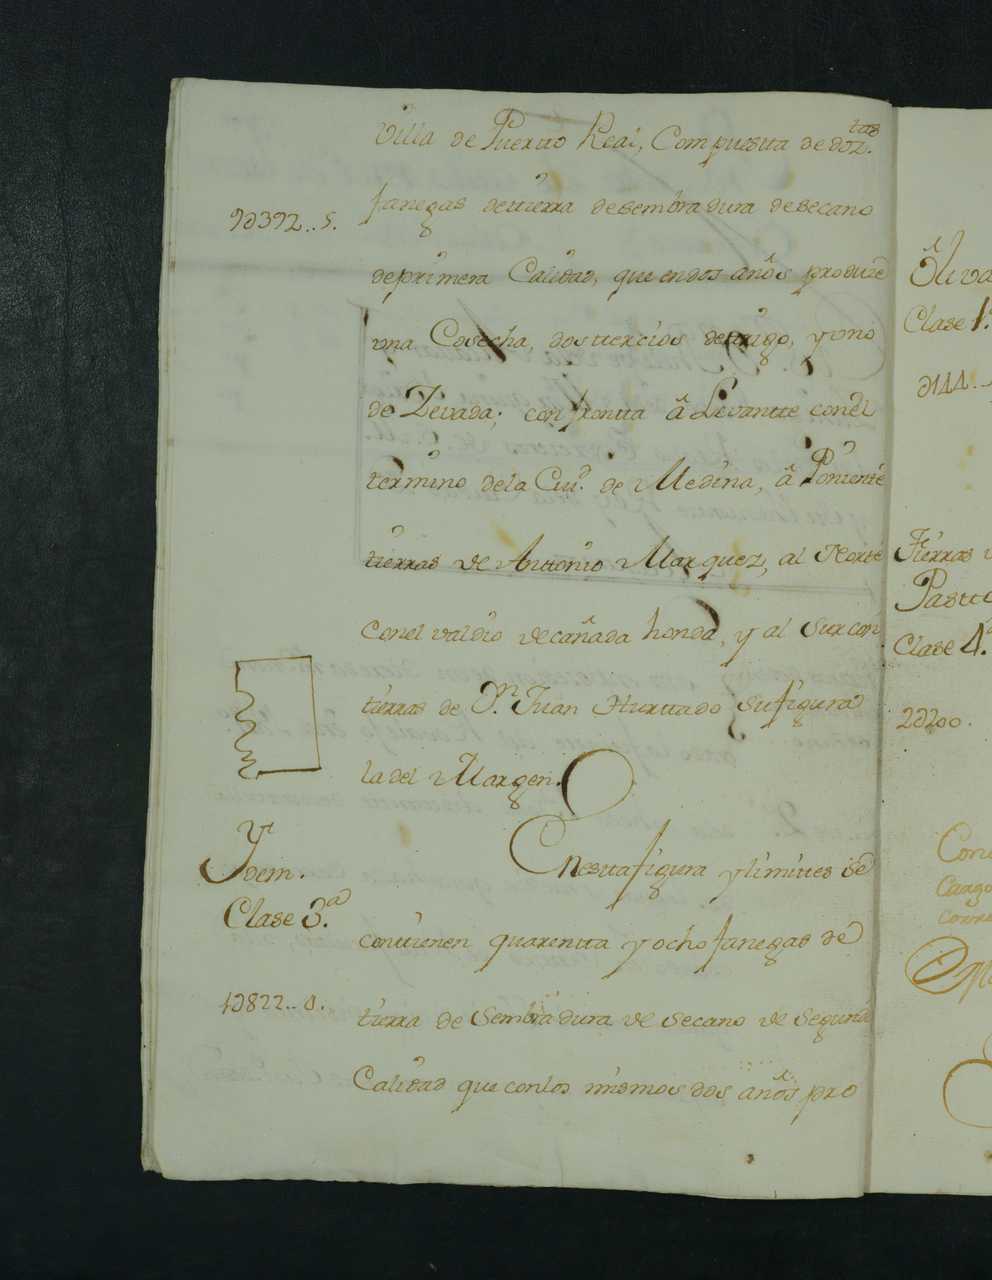 Villa de Puerto Real, Compuesta de doz.tas
fanegas de tierra de sembradura de secano
9d392..5.
de primera Calidad, que en dos años produze
una Cosecha, dos tercios de trigo, y uno
de Zevada; confronta â Levantte con el
termino de la Ciu.d de Medina, â Poniente
tierras de Antonio Marquez, al Norte
con el valdio de cañada honda, y al Sur con
tierras de D.n Juan Hurtado su figura
la del Margen.
Ydem.
Clase 3.a
En esta figura y limites se
contienen quarenta y ocho fanegas de
1d822..
tierra de Sembradura de Secano de Segunda
Calidad que con los mismos dos años pro
Oliva
Clase 1.a
d144..
Tierras
Pasto
Clase 4.a
2d200.